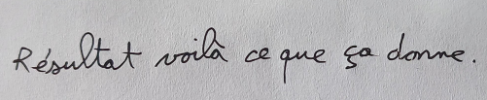 Résultat voilà ce que ça donne.